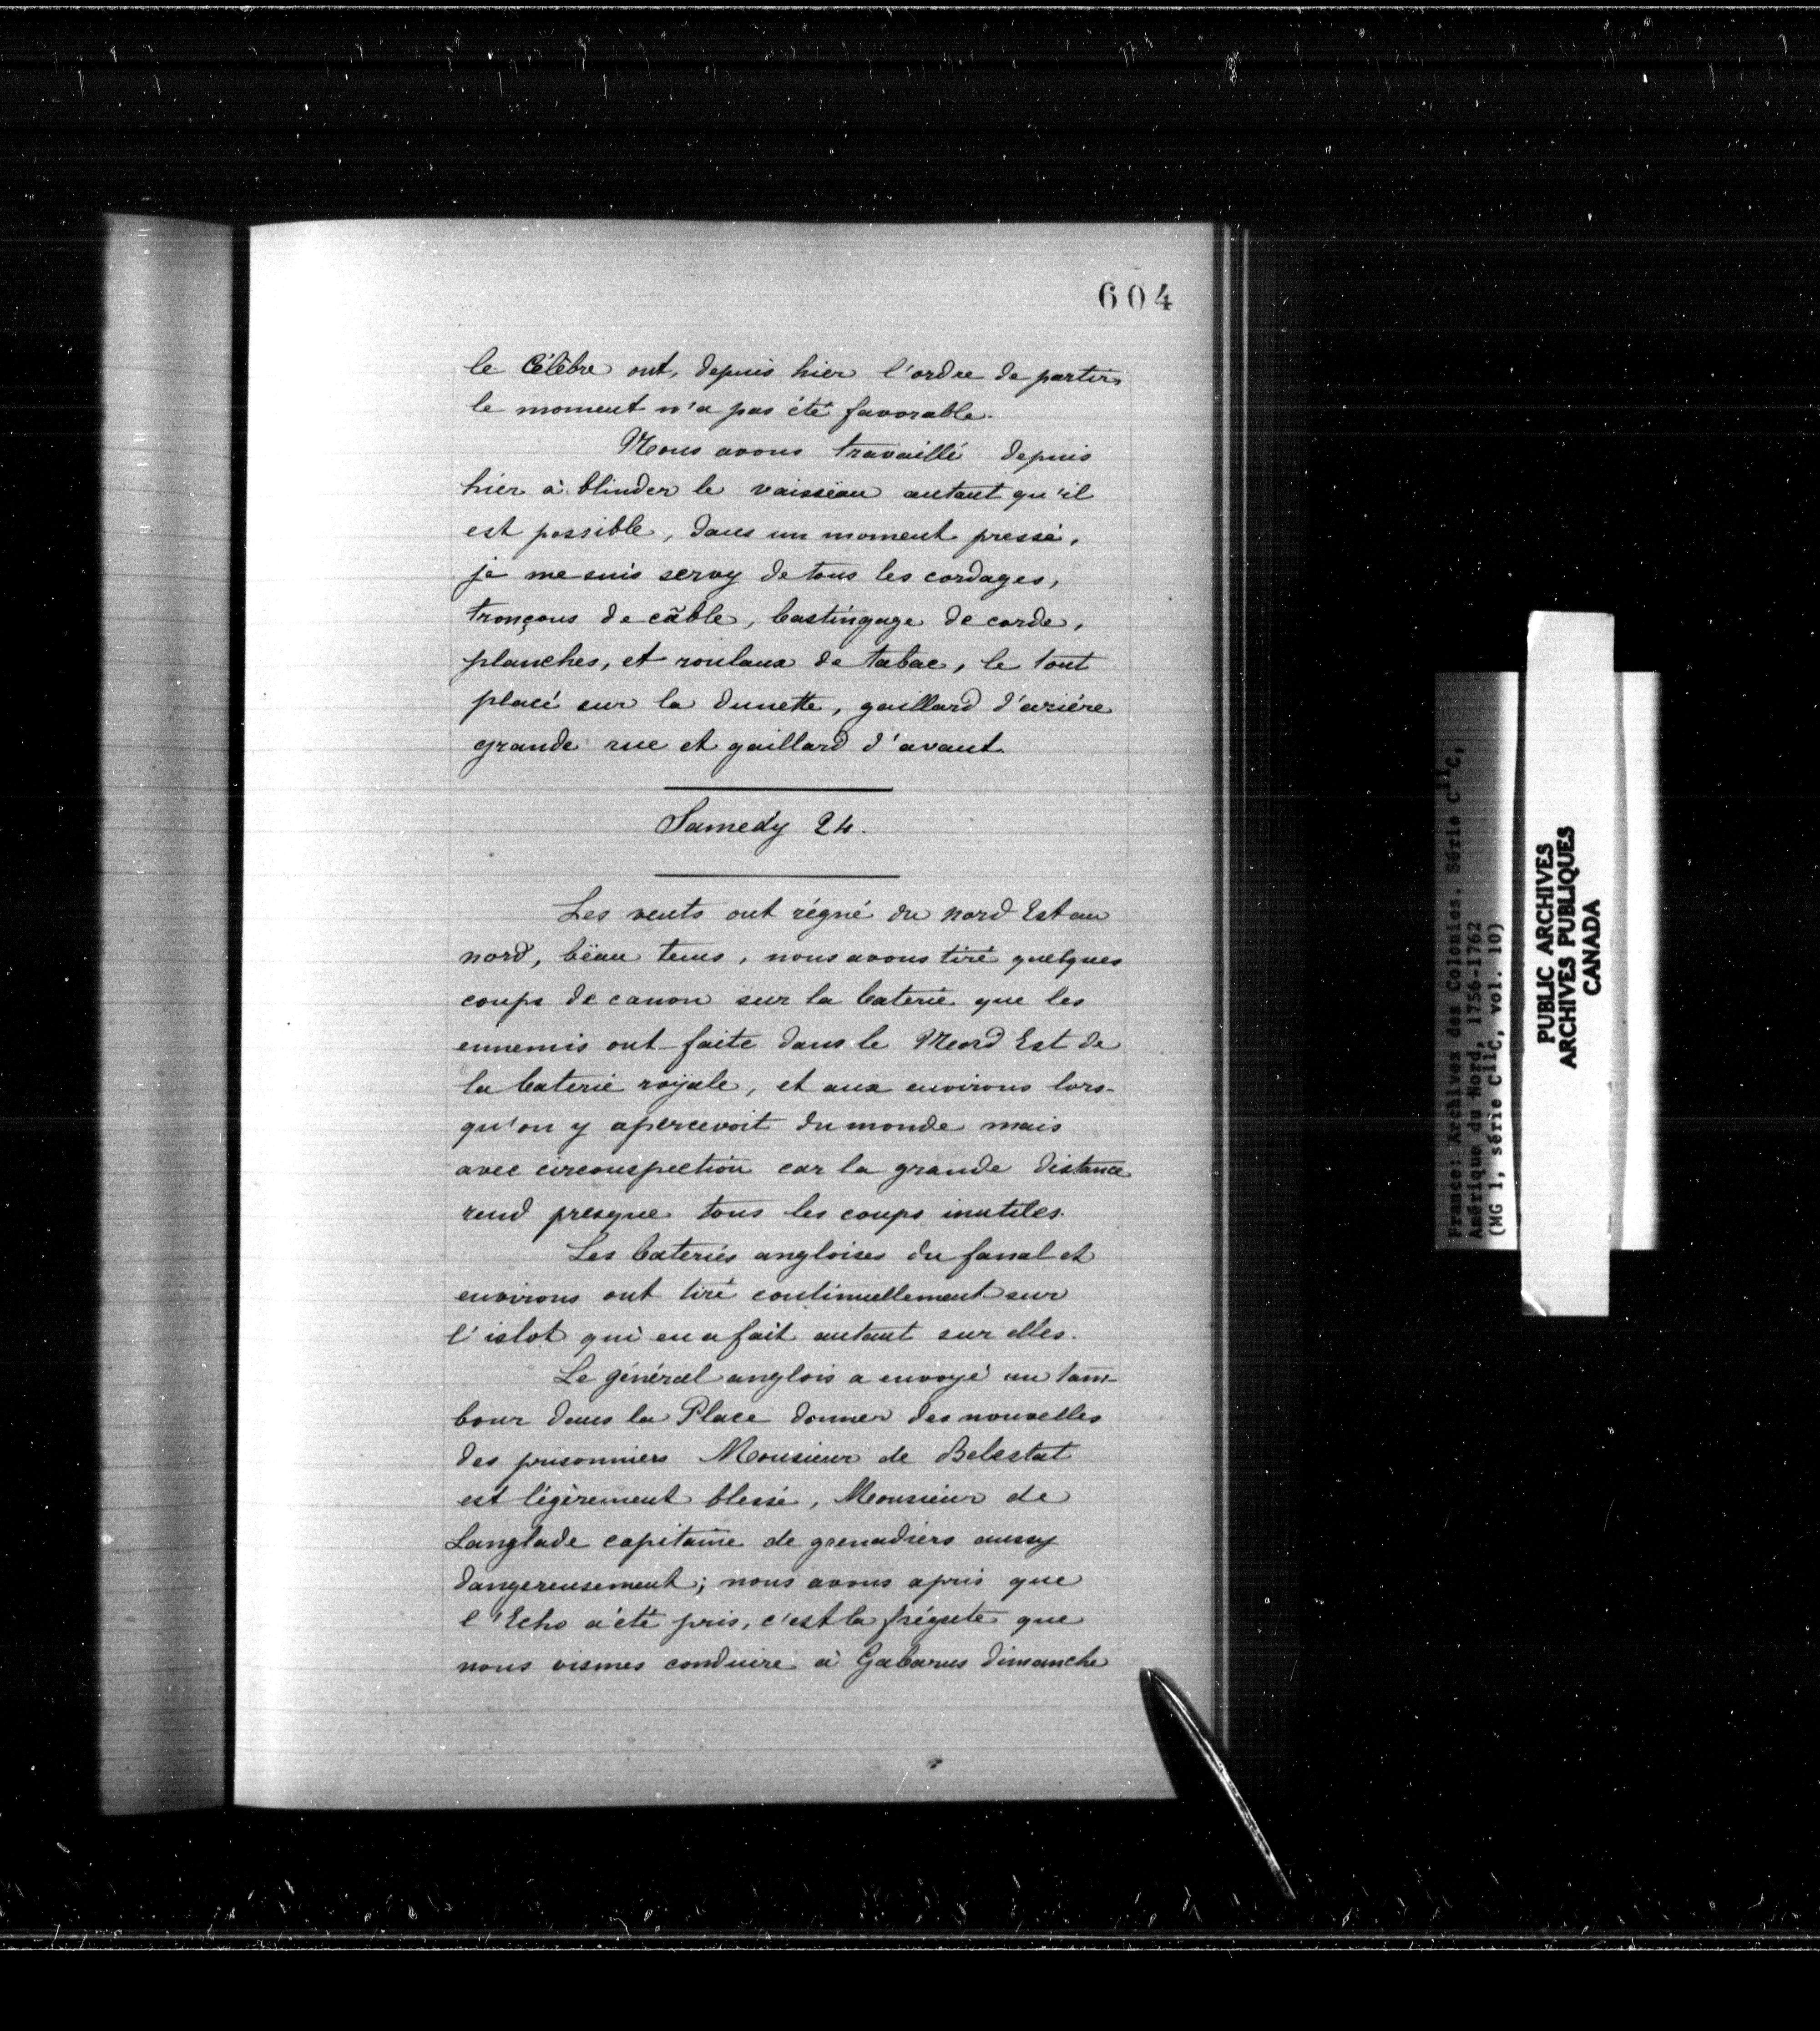 604
le Célèbre ont, depuis hier l'ordre de partir,
le moment n'a pas été favorable.
Nous avons travaillé depuis
hier à blinder le vaisseau autant qu'il
est possible, dans un moment pressé,
je me suis servy de tous les cordages,
tronçons de câble, bastingage de corde,
planches, et roulaux de tabac, le tout
placé sur la dunette, gaillard d'ariére
grande rue et gaillard d'avant.
Samedy 24.
Les vents ont régné du nord Est au
nord, bëau tems, nous avons tiré quelques
coups de canon sur la baterie que les
ennemis ont faite dans le Nord Est de
la baterie roÿale, et aux environs lors-
qu'on y apercevoit du monde mais
avec circonspection car la grande distance
rend presque tous les coups inutiles.
Les bateries angloises du fanal et
environs ont tiré continuellement sur
l'islot qui en a fait autant sur elles.
Le général anglois a envoyé un tam-
bour dans la Place donner des nouvelles
des prisonniers Monsieur de Belestat
est légèrement blessé, Monsieur de
Langlade capitaine de grenadiers aussy
dangereusement; nous avons apris que
l'Echo a été pris, c'est la frégate que
nous vismes conduire à Gabarus dimanche
France: Archives des Colonies. Série C11C,
Amérique du Nord, 1756-1762
(MG 1, série C11C, vol. 10)
PUBLIC ARCHIVES
ARCHIVES PUBLIQUES
CANADA